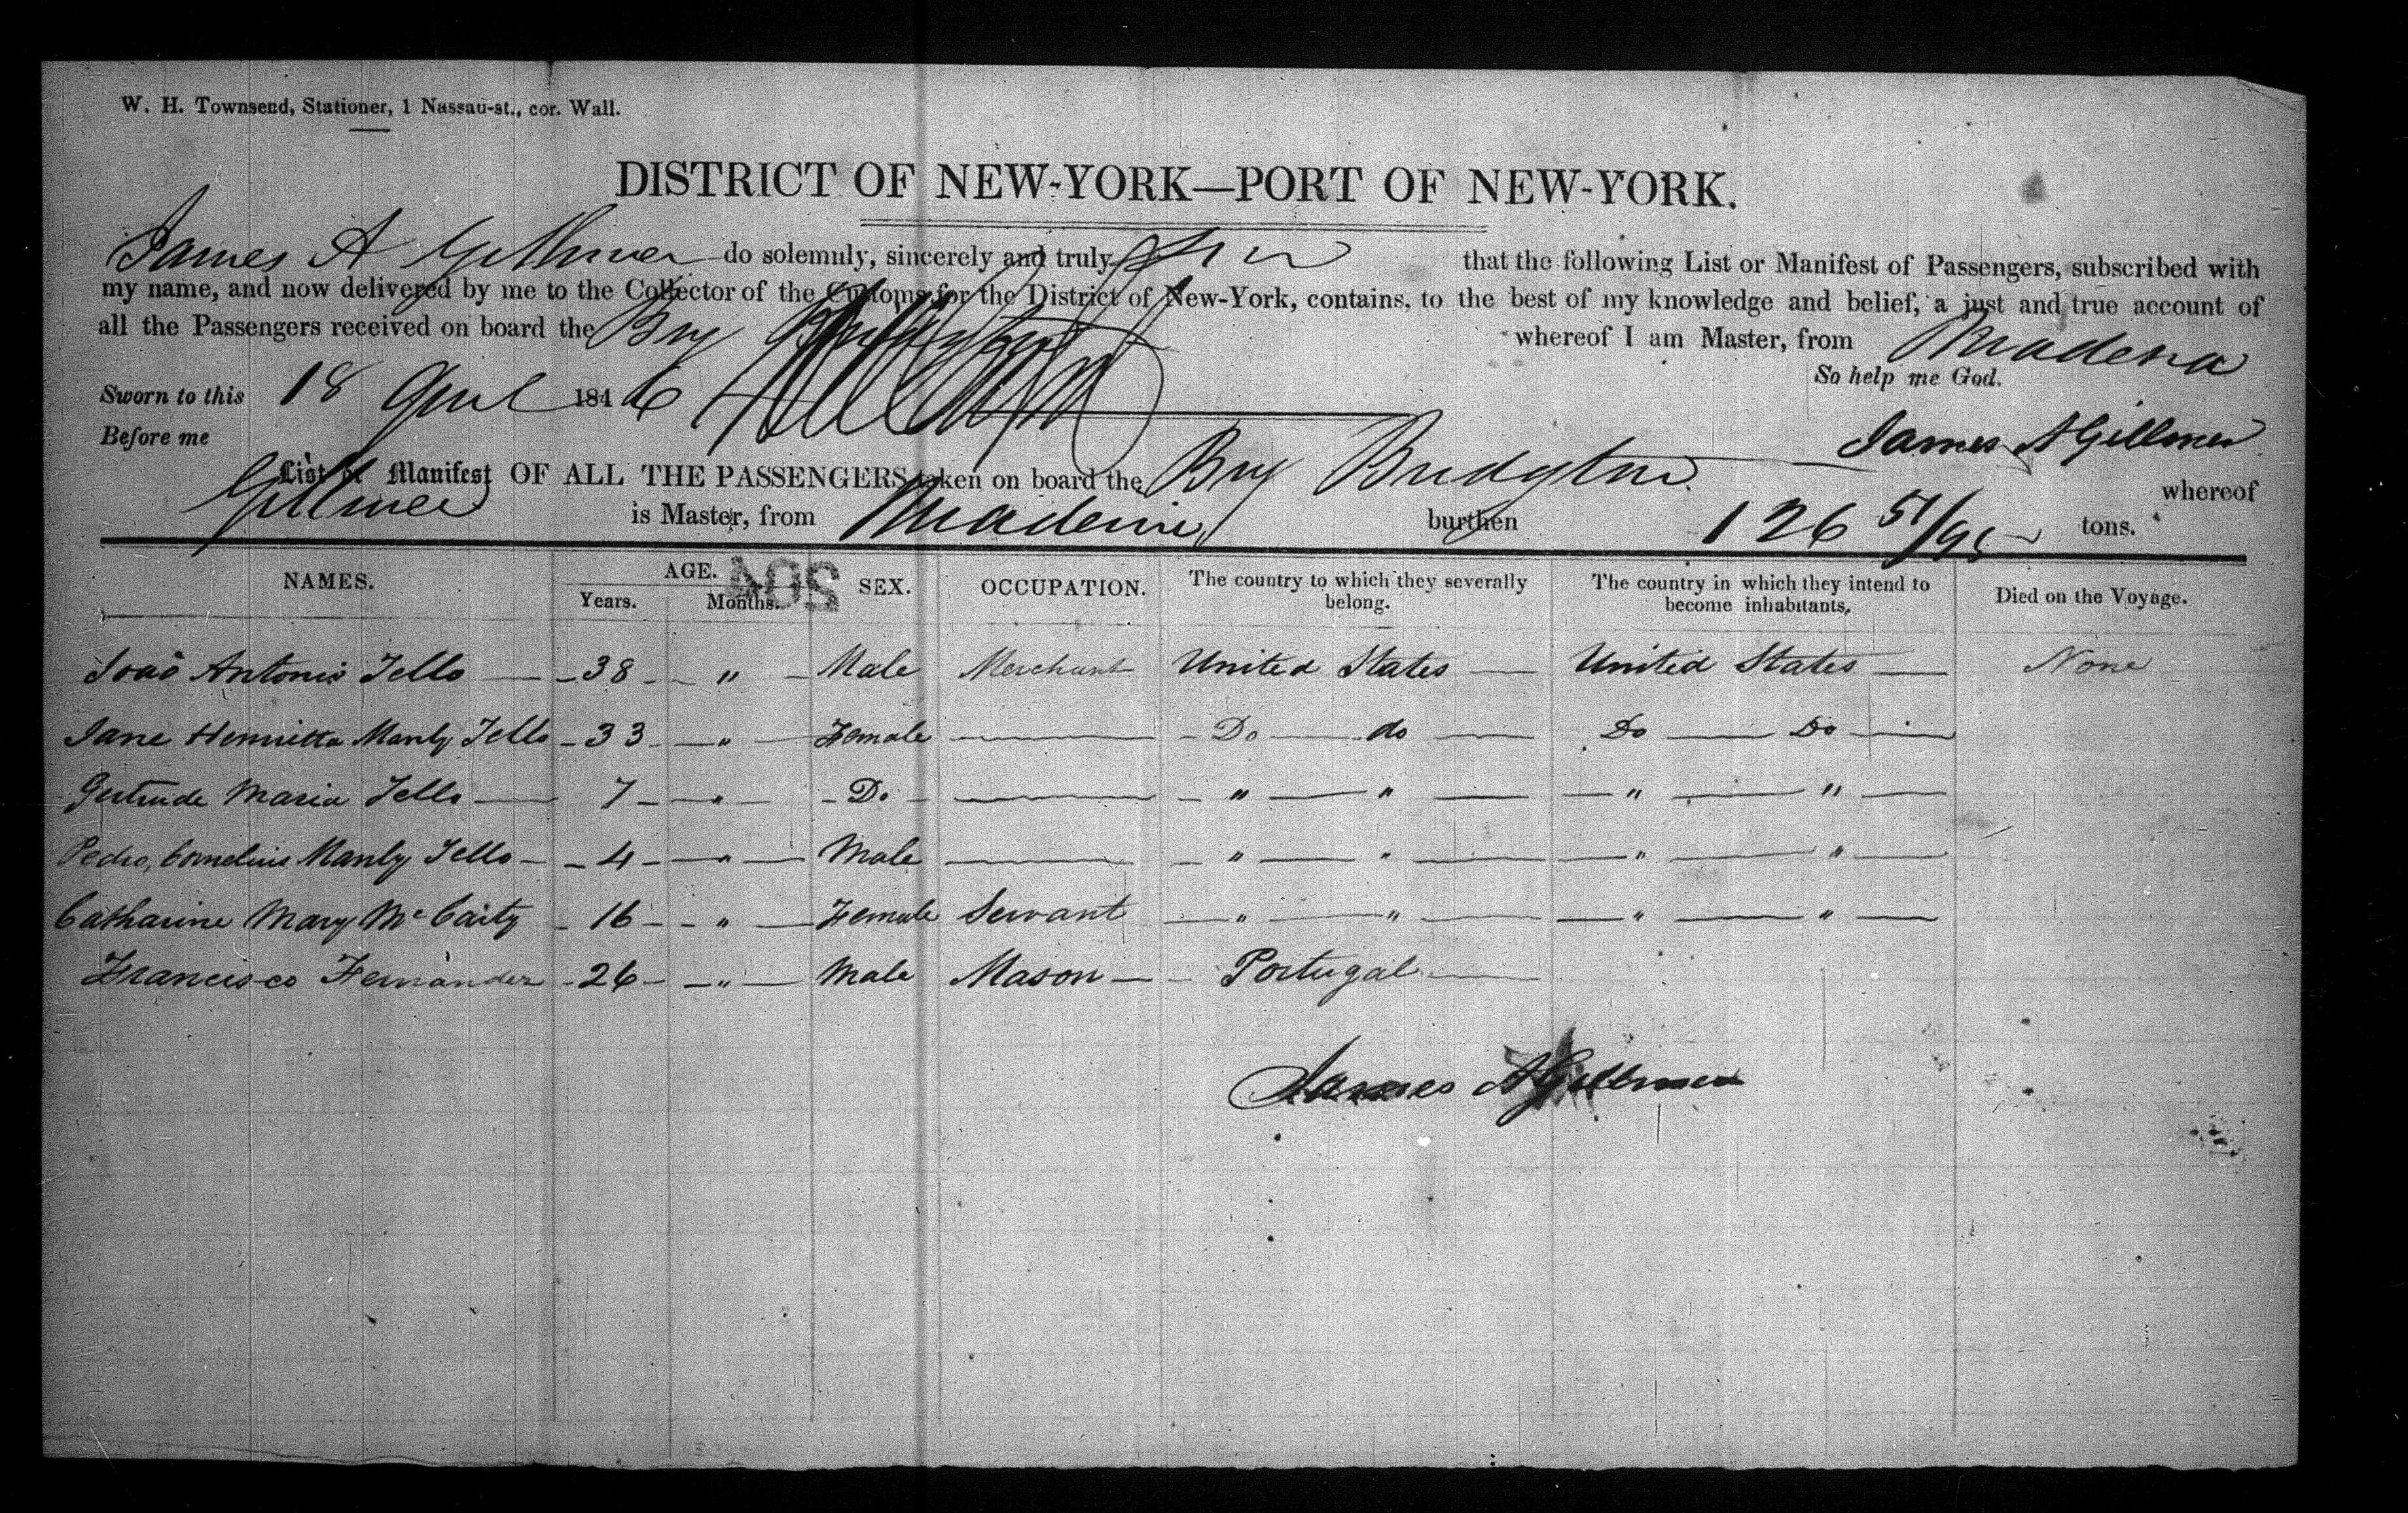 W. H. Townsend, Stationer, 1 Nassau-st., cor. Wall.
DISTRICT OF NEW-YORK—PORT OF NEW-YORK.
James A Gillmer do solemnly, sincerely and truly that the following List or Manifest of Passengers, subscribed with
my name, and now delivered by me to the Collector of the Customs for the District of New-York, contains, to the best of my knowledge and belief, a just and true account of
all the Passengers received on board the Brig whereof I am Master, from Madeira
So help me God.
Sworn to this 18 April 1846
Before me
James A Gillmer
List or Manifest OF ALL THE PASSENGERS taken on board the Brig Bridgton whereof
Gillmer is Master, from Madeira burthen 126 51/95 tons.
NAMES. AGE. Years. Months. SEX. OCCUPATION. The country to which they severally belong. The country in which they intend to become inhabitants. Died on the Voyage.
204
Joaõ Antonio Tello — 38 — " — Male Merchant United States — United States — None
Jane Henrietta Manly Tello — 33 — " — Female — Do — do — Do — Do —
Gertrude Maria Tello — 7 — " — Do — " — " — " — " —
Pedro, Cornelius Manly Tello — 4 — " — Male — " — " — " — " —
Catharine Mary McCarty — 16 — " — Female Servant — " — " — " — " —
Francisco Fernandez — 26 — " — Male Mason — Portugal —
James A Gillmer